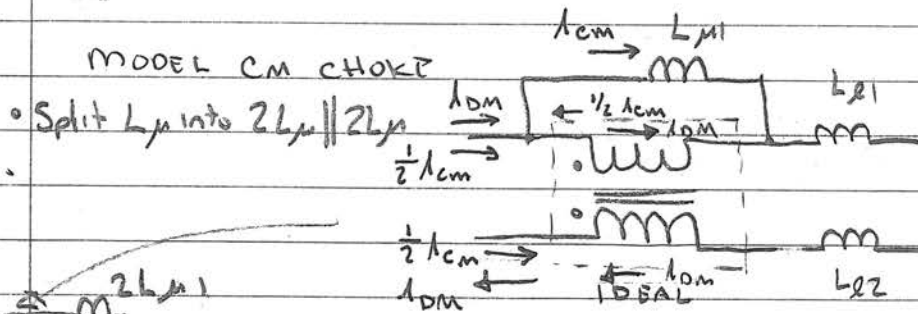 MODEL CM CHOKE
iCM Lμ1
• Split Lμ into 2Lμ || 2Lμ
iDM
½ iCM
iDM
Lℓ1
½ iCM
½ iCM
iDM
iDM
IDEAL
Lℓ2
2Lμ1